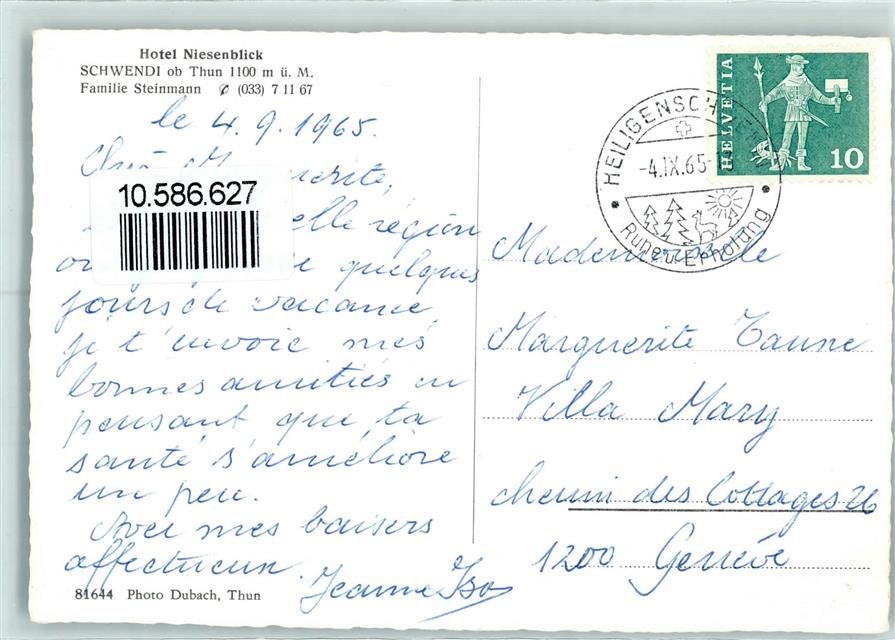 Hotel Niesenblick
SCHWENDI ob Thun 1100 m ü. M.
Familie Steinmann ✆ (033) 7 11 67
le 4. 9. 1965.
10.586.627
elle région
quelques
jours de vacance,
je t'envoie mes
bonnes amitiés en
pensant que ta
santé s'améliore
un peu.
Avec mes baisers
affectueux.
Jeanne
81644 Photo Dubach, Thun
HELVETIA
10
HEILIGENSCH
-4.IX.65-
Ruhe u. Erholung
Mademoiselle
Marguerite
Villa Mary
chemin des Cottages 26
1200 Genève